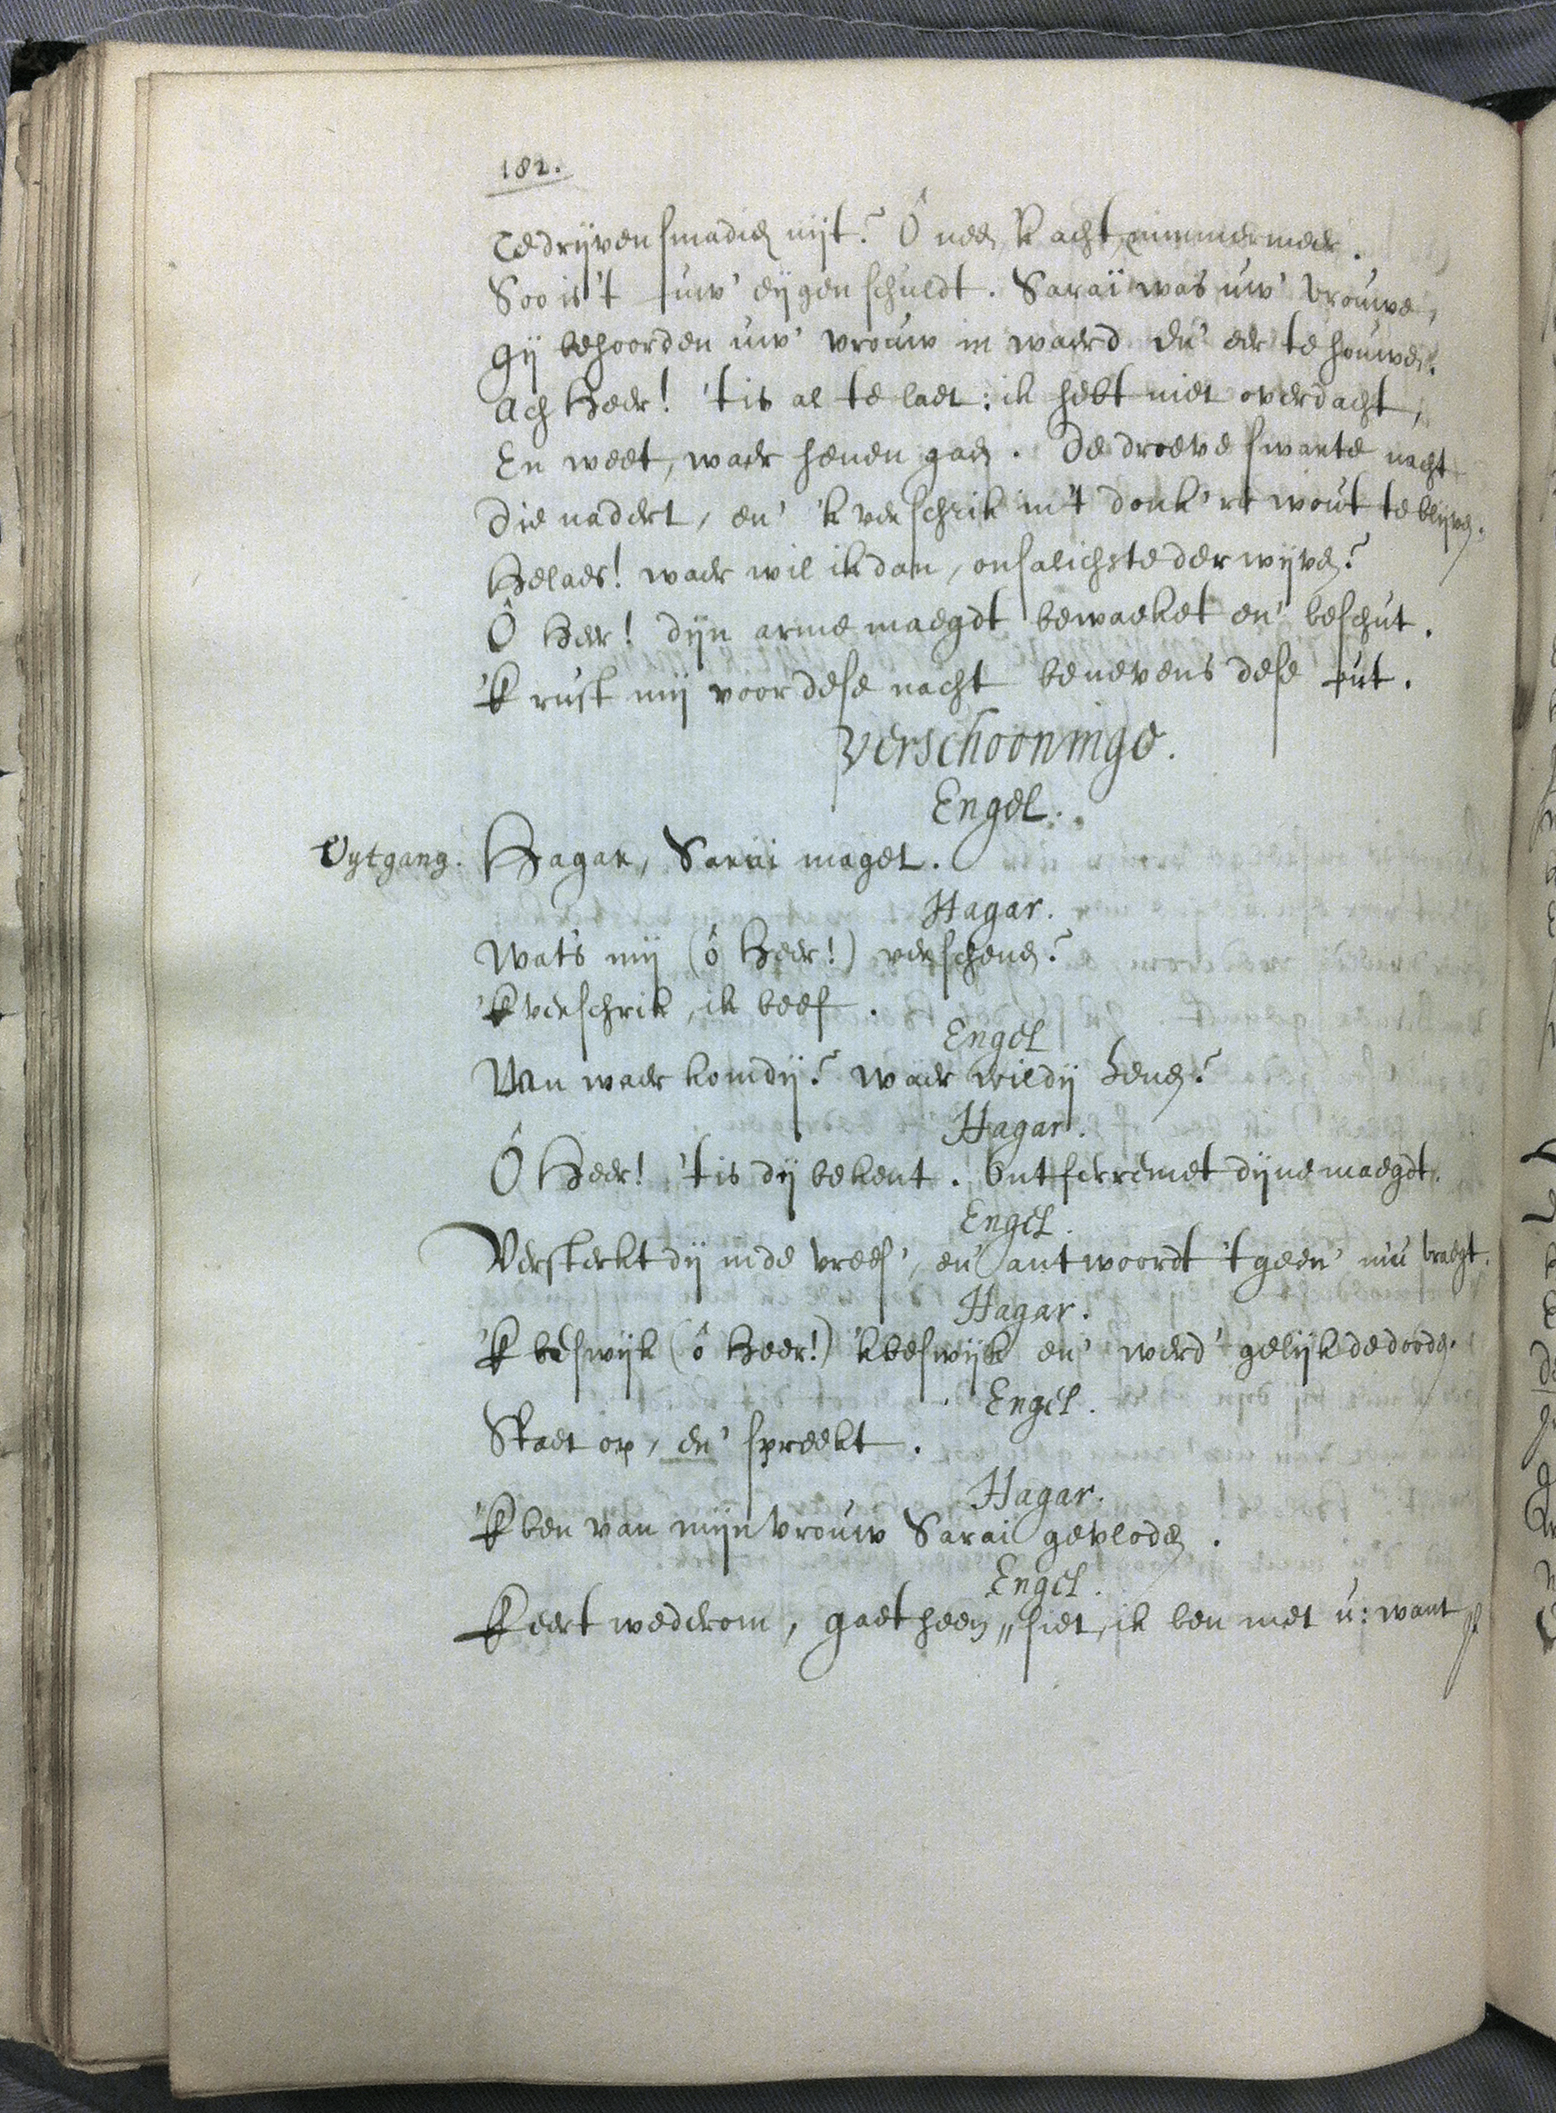 182.
Te drijven smadich uijt? Ô neen k acht, nimmermeer.
Soo is 't uw' eijgen schuldt. Saraï was uw' vrouwe,
Gij behoorden uw' vrouw in waerd en' eer te houwen.
Ach Heer! 'tis al te laet: ik hebt niet overdacht,
En weet, waer henen gaen. De droeve swarte nacht
Die nadert, en' 'k verschrik in't donk're wout te blijven.
Helaes! waer wil ik dan, onsalichste der wijven?
Ô Heer! dijn arme maegdt bewaeket en' beschut.
'K rust mij voor dese nacht benevens dese put.
Verschooninge.
Engel.
Uytgang. Hagar, Sarai maget.
Hagar.
Wat's mij (ô Heer!) verschenen?
'K verschrik, ik beef.
Engel
Van waer komdij? waer wildij henen?
Hagar.
Ô Heer! 'tis dij bekent. Ontferremet dijne maegdt.
Engel.
Versterkt dij inde vrees', en' antwoordt 't geen' m'u vraegt.
Hagar.
'K beswijk (ô Heer!) 'k beswijk en' werd' gelijk de dooden.
Engel.
Staet op, en' spreekt.
Hagar.
'K ben van mijn vrouw Sarai gevloden.
Engel.
Keert wederom, gaet heen, siet, ik ben met u: want